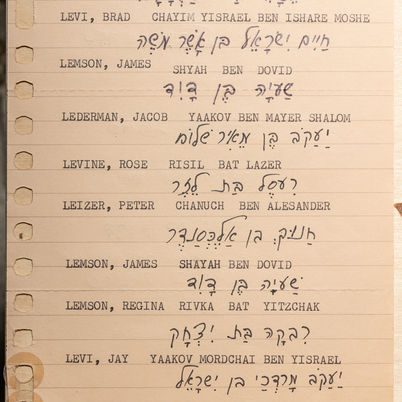 LEVI, BRAD CHAYIM YISRAEL BEN ISHARE MOSHE
חַיִּים יִשְׂרָאֵל בֶּן אָשֶׁר מֹשֶׁה
LEMSON, JAMES SHYAH BEN DOVID
שַׁעְיָה בֶּן דָּוִד
LEDERMAN, JACOB YAAKOV BEN MAYER SHALOM
יַעֲקֹב בֶּן מֵאִיר שָׁלוֹם
LEVINE, ROSE RISIL BAT LAZER
רעסל בַּת לֵזֶר
LEIZER, PETER CHANUCH BEN ALESANDER
בן אַלֶכְּסַנְדֶר
LEMSON, JAMES SHAYAH BEN DOVID
שַׁעְיָה בֶּן דָּוִד
LEMSON, REGINA RIVKA BAT YITZCHAK
רִבְקָה בַּת יִצְחָק
LEVI, JAY YAAKOV MORDCHAI BEN YISRAEL
יַעֲקֹב מָרְדְּכַי בֶּן יִשְׂרָאֵל